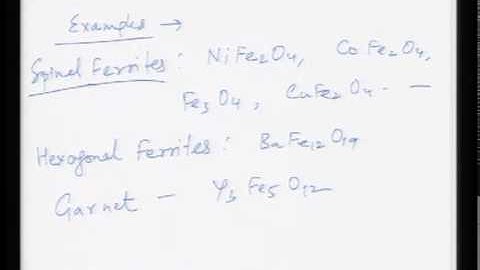 Examples →
Spinel Ferrites : NiFe₂O₄, CoFe₂O₄,
Fe₃O₄, CuFe₂O₄ - —
Hexagonal Ferrites : BaFe₁₂O₁₉
Garnet — Y₃Fe₅O₁₂